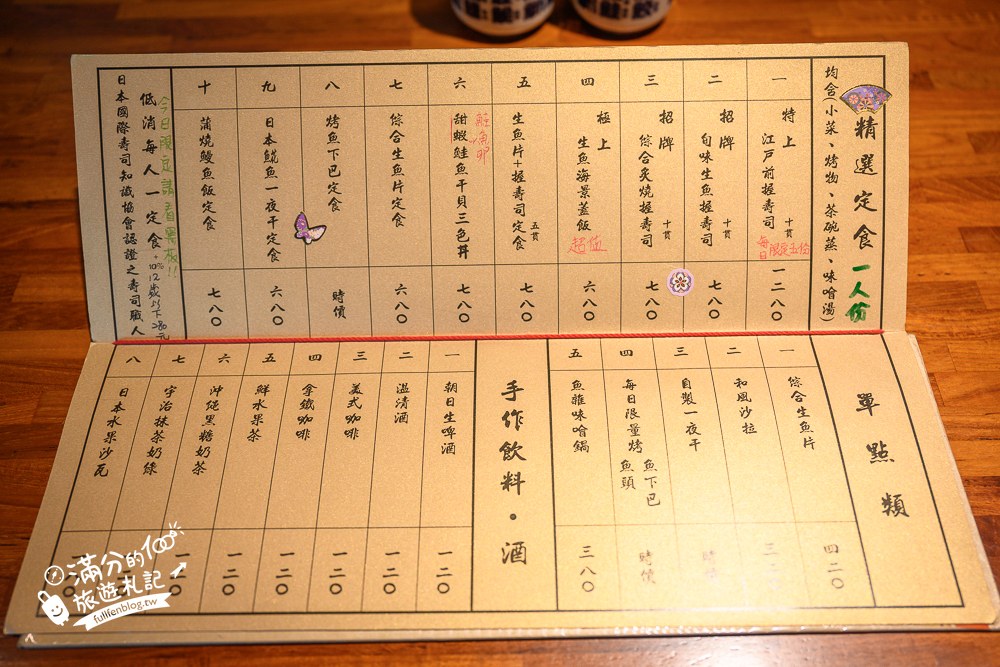 精選定食 一人份
均含(小菜、烤物、茶碗蒸、味噌湯)
一 特上 江戸前握壽司 十貫 每日限定五份 一二八〇
二 招牌 旬味生魚握壽司 十貫 七八〇
三 招牌 綜合炙燒握壽司 十貫 六八〇
四 極上 生魚海景蓋飯 超值 六八〇
五 生魚片+握壽司定食 五貫 七八〇
六 甜蝦鮭魚干貝三色丼 鮭魚卵 七八〇
七 綜合生魚片定食 六八〇
八 烤魚下巴定食 時價
九 日本鯖魚一夜干定食 六八〇
十 蒲燒鰻魚飯定食 七八〇
今日限定請看黑板!!
低消每人一定食 +10% 12歲以下280元
日本國際壽司知識協會認證之壽司職人
單點類
一 綜合生魚片 四二〇
二 和風沙拉
三 自製一夜干 時價
四 每日限量烤 魚下巴 魚頭 時價
五 魚雜味噌鍋 三八〇
手作飲料·酒
一 朝日生啤酒 一二〇
二 溫清酒 一二〇
三 美式咖啡 一二〇
四 拿鐵咖啡 一二〇
五 鮮水果茶 一二〇
六 沖繩黑糖奶茶 一二〇
七 宇治抹茶奶綠 一二〇
八 日本水果沙瓦
滿分的100%
旅遊札記
fullfenblog.tw